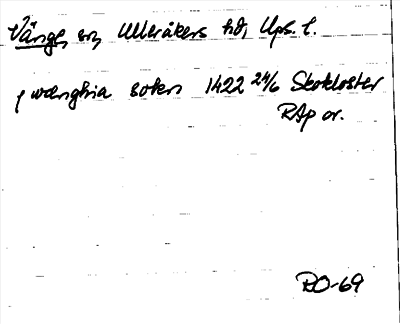 Vänge, sn, Ulleråkers hd, Ups. l.
j wænghia soken 1422 24/6 Skokloster
RAp or.
RO-69